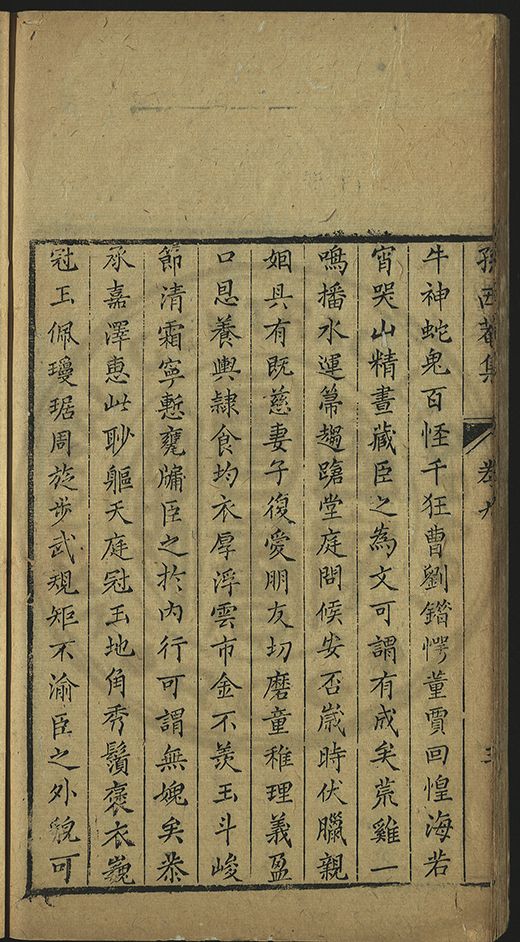 孫西菴集 卷九 三
牛神蛇鬼百怪千狂曹劉鍇愕董賈回惶海若
宵哭山精晝藏臣之為文可謂有成矣荒雞一
鳴播水運箒趨蹌堂庭問候安否歲時伏臘親
姻具有既慈妻子復愛朋友切磨童稚理義盈
口恩養輿隸食均衣厚浮雲市金不羨玉斗峻
節清霜寧慙甕牖臣之於內行可謂無媿矣忝
承嘉澤惠此眇軀天庭冠玉地角秀鬚褒衣巍
冠玉佩瓊琚周旋步武規矩不渝臣之外貌可